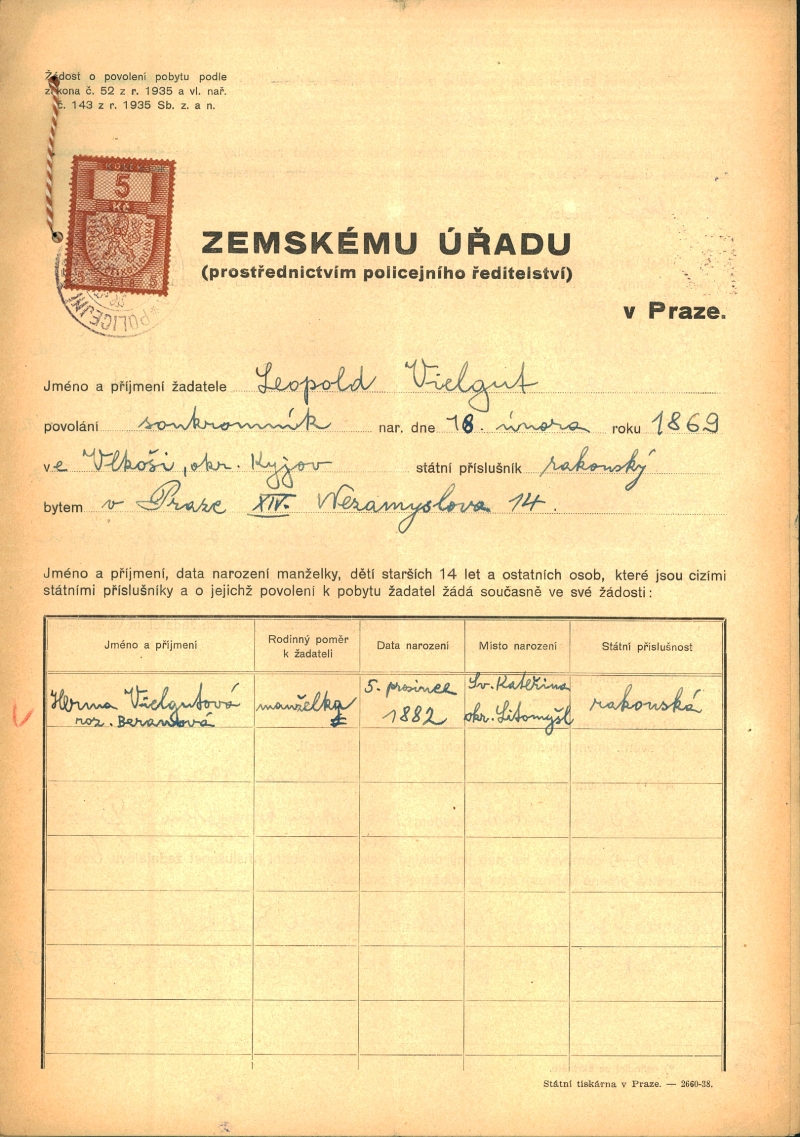 Žádost o povolení pobytu podle
zákona č. 52 z r. 1935 a vl. nař.
č. 143 z r. 1935 Sb. z. a n.
KOLEK
5
Kč
POLICEJNÍ
ZEMSKÉMU ÚŘADU
(prostřednictvím policejního ředitelství)
v Praze.
Jméno a příjmení žadatele Leopold Vielgut
povolání soukromník nar. dne 18. února roku 1869
ve Vlkoši, okr. Kyjov státní příslušník rakouský
bytem v Praze XIV. Nezamyslova 14.
Jméno a příjmení, data narození manželky, dětí starších 14 let a ostatních osob, které jsou cizími
státními příslušníky a o jejichž povolení k pobytu žadatel žádá současně ve své žádosti:
Jméno a příjmení Rodinný poměr k žadateli Data narození Místo narození Státní příslušnost
Herma Vielgutová manželka 5. prosince Sv. Kateřina rakouská
roz. Beranová 1882 okr. Litomyšl
Státní tiskárna v Praze. — 2660-38.